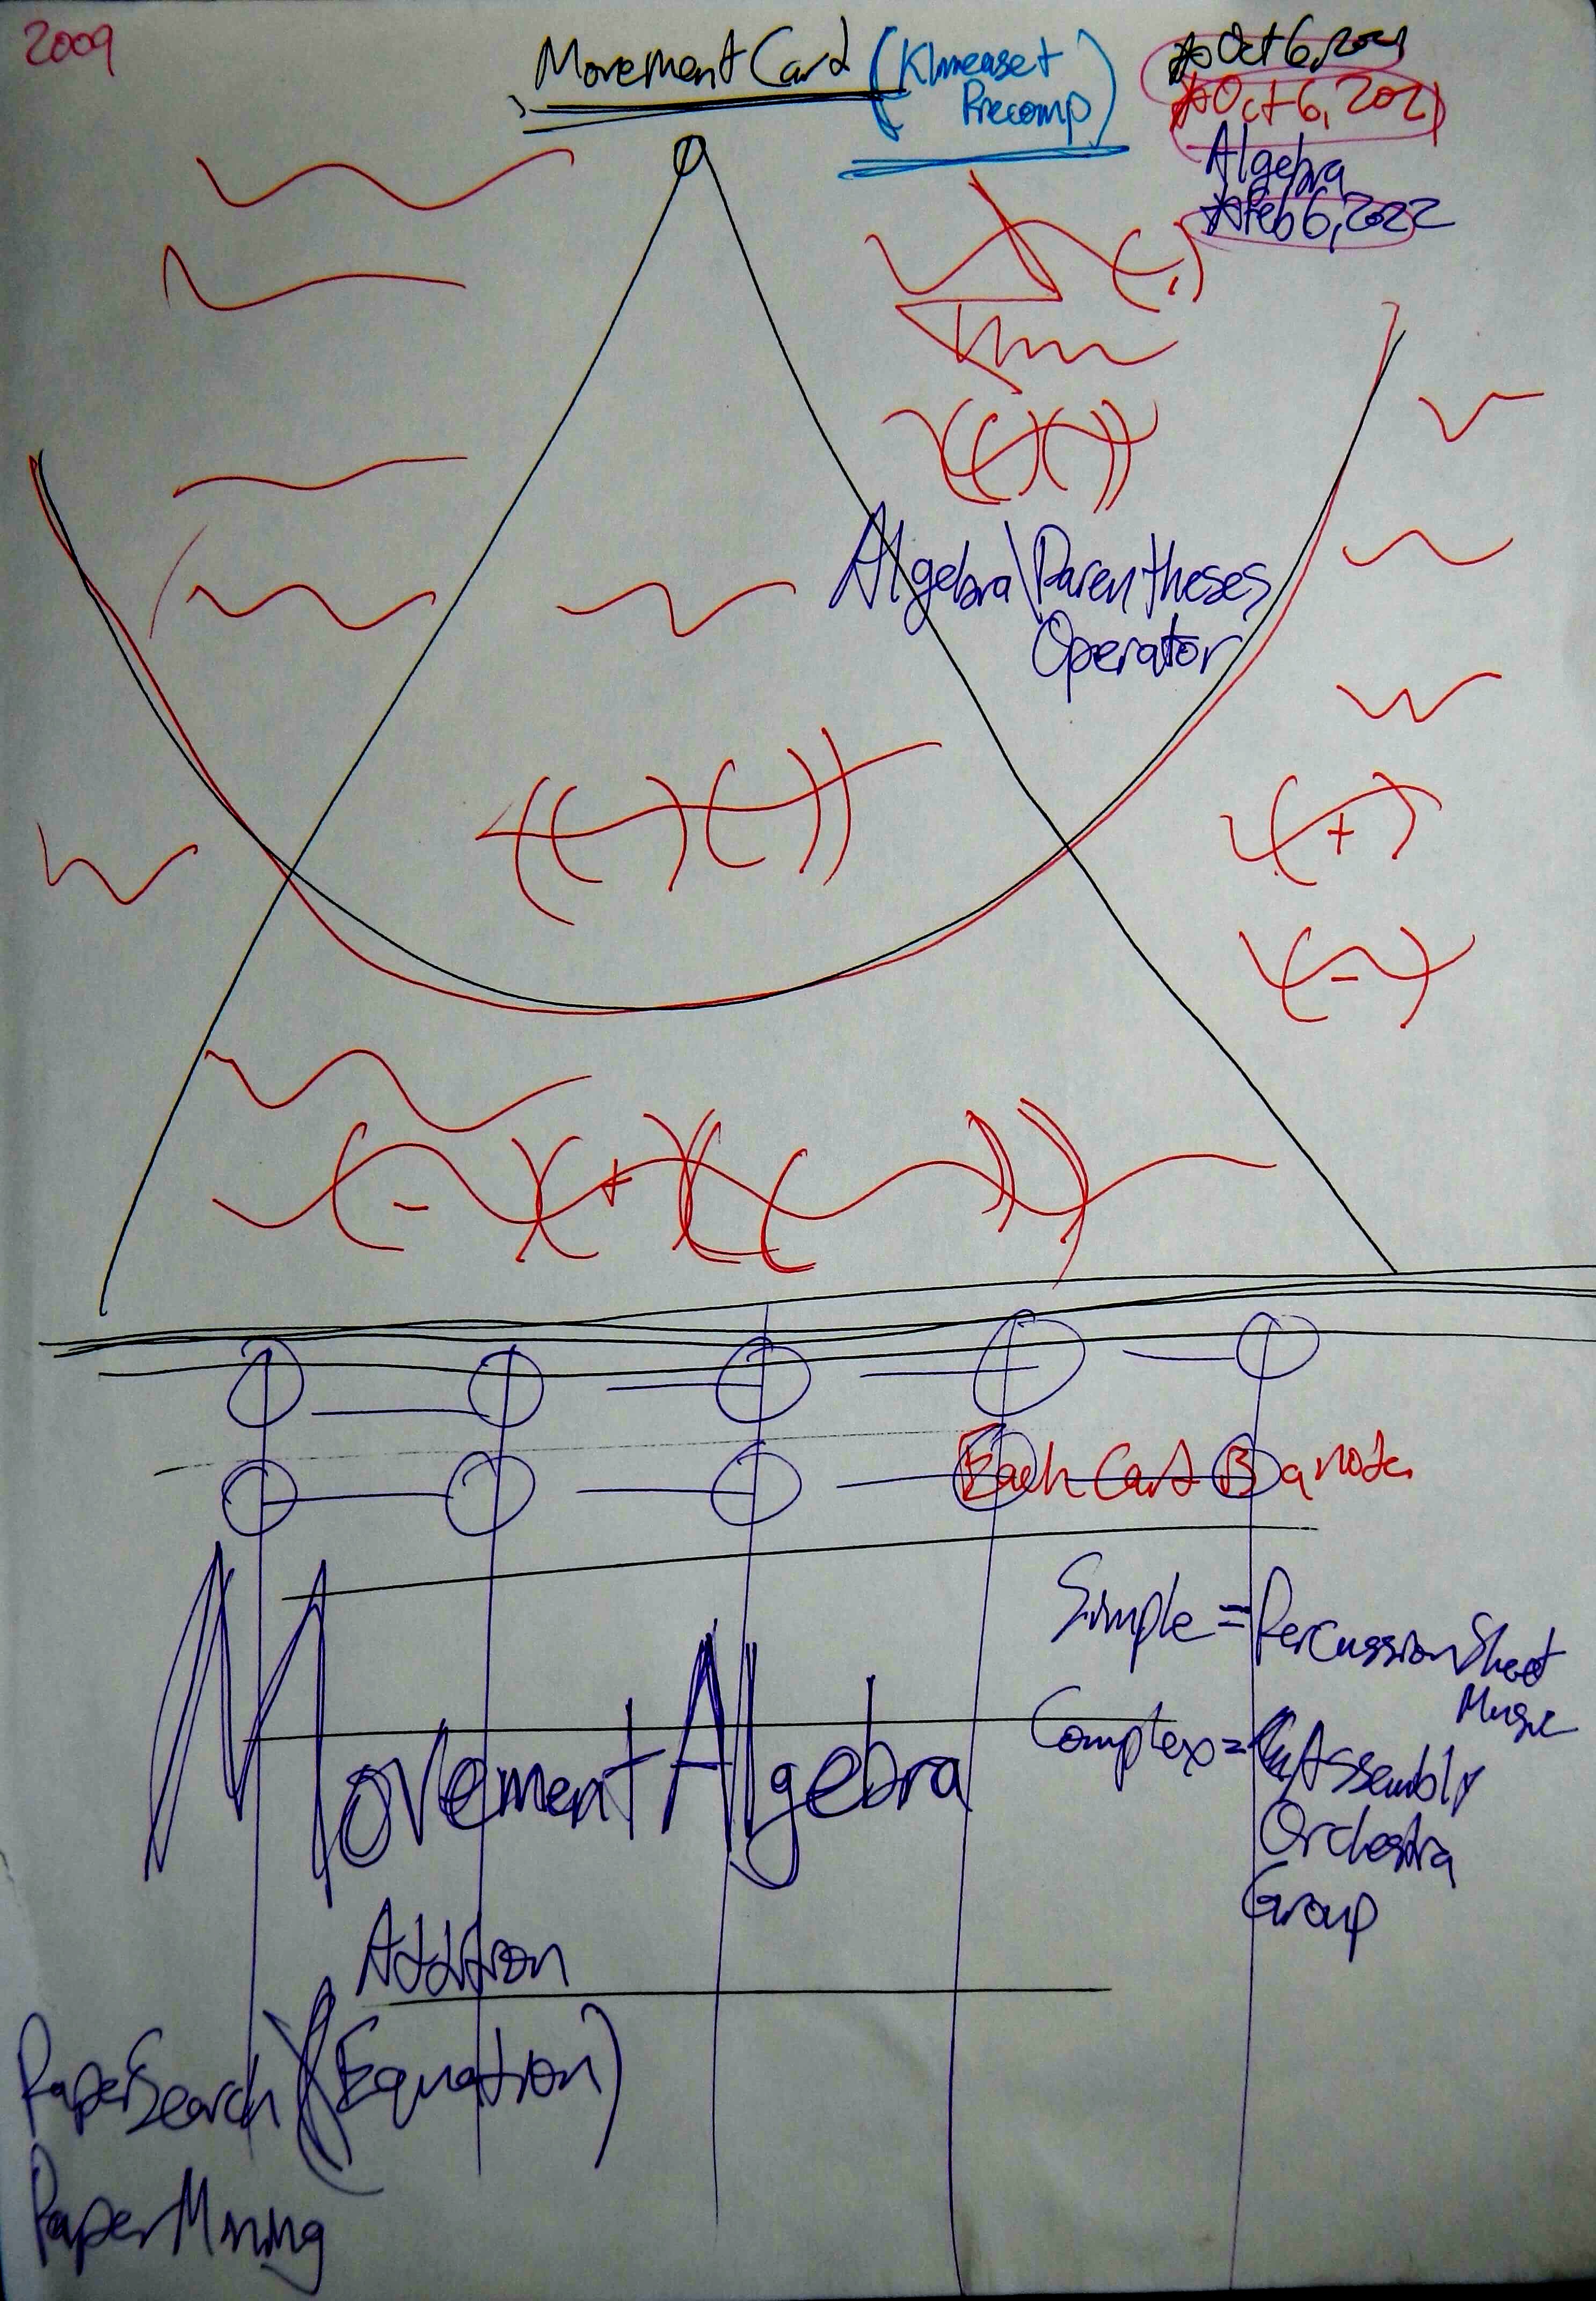 2009
Movement Card (Klmeaset
Precomp)
*Oct 6, 2021
*Oct 6, 2021
Algebra
*Feb 6, 2022
(.)
(( )( ))
Algebra\Parentheses
Operator
(( )( ))
(+)
(-)
(-)(+)(( ))
Each Card is a note.
Simple = Percussion Sheet
Music
Complex = Assembly
Orchestra
Group
Movement Algebra
Addition
PaperSearch (Equation)
PaperMining